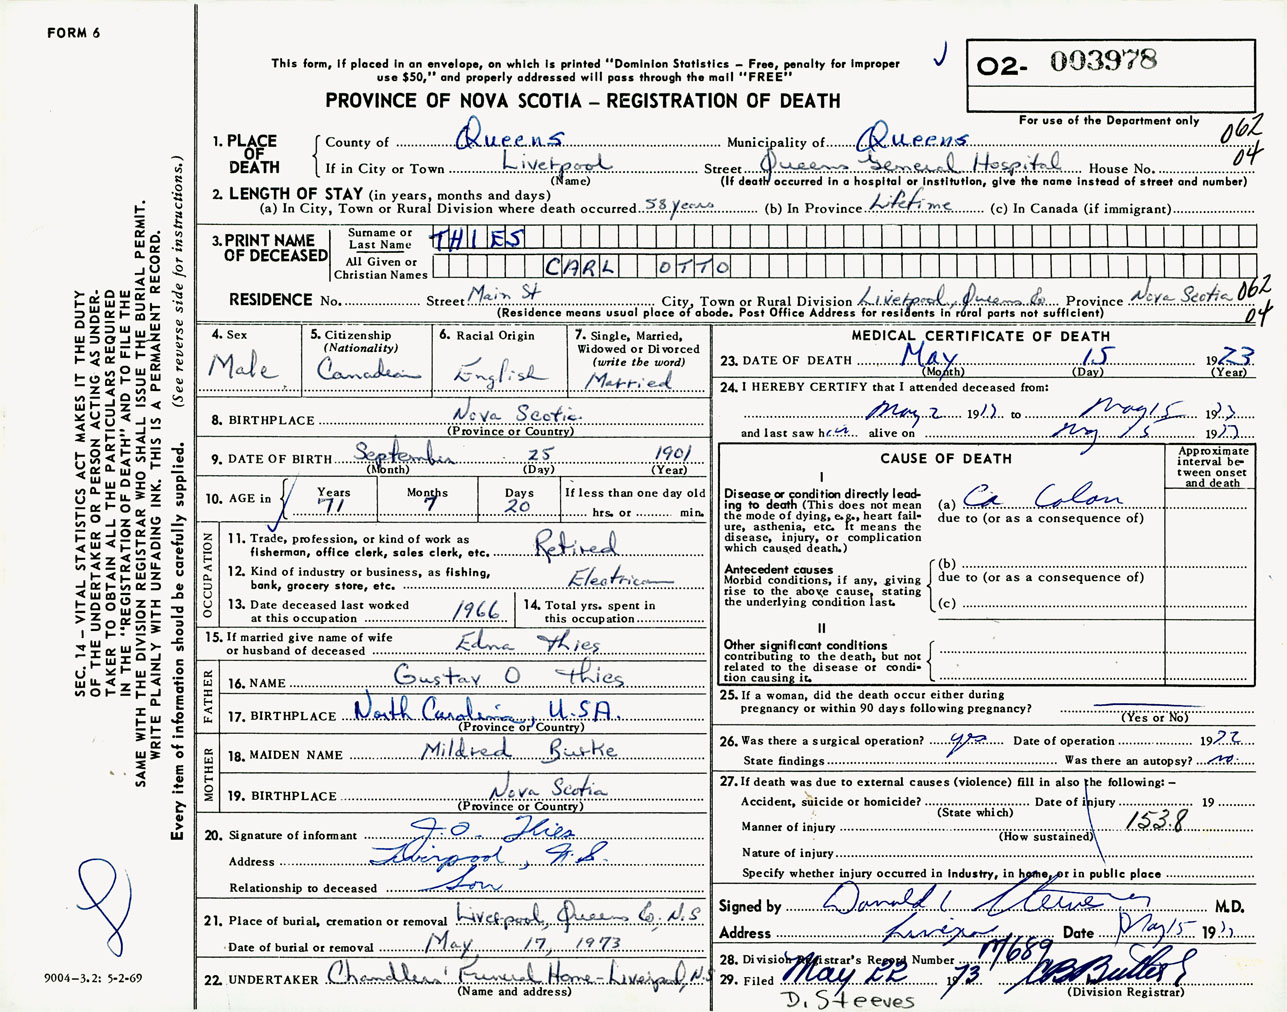 FORM 6
This form, if placed in an envelope, on which is printed "Dominion Statistics – Free, penalty for improper
use $50," and properly addressed will pass through the mail "FREE"
PROVINCE OF NOVA SCOTIA – REGISTRATION OF DEATH
O2- 003978
For use of the Department only
062
04
1. PLACE OF DEATH
County of Queens Municipality of Queens
If in City or Town Liverpool Street Queens General Hospital House No.
(Name) (If death occurred in a hospital or institution, give the name instead of street and number)
2. LENGTH OF STAY (in years, months and days)
(a) In City, Town or Rural Division where death occurred 58 years (b) In Province Lifetime (c) In Canada (if immigrant)
3. PRINT NAME OF DECEASED
Surname or Last Name THIES
All Given or Christian Names CARL OTTO
RESIDENCE No. Street Main St City, Town or Rural Division Liverpool, Queens Co. Province Nova Scotia 062
(Residence means usual place of abode. Post Office Address for residents in rural parts not sufficient) 04
4. Sex
Male
5. Citizenship
(Nationality)
Canadian
6. Racial Origin
English
7. Single, Married,
Widowed or Divorced
(write the word)
Married
8. BIRTHPLACE Nova Scotia
(Province or Country)
9. DATE OF BIRTH September 25 1901
(Month) (Day) (Year)
10. AGE in
Years Months Days If less than one day old
71 7 20 hrs. or min.
OCCUPATION
11. Trade, profession, or kind of work as
fisherman, office clerk, sales clerk, etc. Retired
12. Kind of industry or business, as fishing,
bank, grocery store, etc. Electrician
13. Date deceased last worked
at this occupation 1966
14. Total yrs. spent in
this occupation
15. If married give name of wife
or husband of deceased Edna Thies
FATHER
16. NAME Gustav O Thies
17. BIRTHPLACE North Carolina, U.S.A.
(Province or Country)
MOTHER
18. MAIDEN NAME Mildred Burke
19. BIRTHPLACE Nova Scotia
(Province or Country)
20. Signature of informant J.O. Thies
Address Liverpool, N.S.
Relationship to deceased Son
21. Place of burial, cremation or removal Liverpool, Queens Co, N.S
Date of burial or removal May 17, 1973
22. UNDERTAKER Chandlers' Funeral Home - Liverpool, N.S
(Name and address)
MEDICAL CERTIFICATE OF DEATH
23. DATE OF DEATH May 15 1973
(Month) (Day) (Year)
24. I HEREBY CERTIFY that I attended deceased from:
May 2 1973 to May 15 1973
and last saw him alive on May 15 1973
CAUSE OF DEATH
Approximate
interval be-
tween onset
and death
I
Disease or condition directly lead-
ing to death (This does not mean
the mode of dying, e.g., heart fail-
ure, asthenia, etc. It means the
disease, injury, or complication
which caused death.)
(a) Ca Colon
due to (or as a consequence of)
Antecedent causes
Morbid conditions, if any, giving
rise to the above cause, stating
the underlying condition last.
(b)
due to (or as a consequence of)
(c)
II
Other significant conditions
contributing to the death, but not
related to the disease or condi-
tion causing it.
25. If a woman, did the death occur either during
pregnancy or within 90 days following pregnancy?
(Yes or No)
26. Was there a surgical operation? yes Date of operation 1972
State findings Was there an autopsy? no.
27. If death was due to external causes (violence) fill in also the following: –
Accident, suicide or homicide? Date of injury 19
(State which)
Manner of injury 153.8
(How sustained)
Nature of injury
Specify whether injury occurred in industry, in home, or in public place
Signed by Donald L Steeves M.D.
Address Liverpool Date May 15 1973
28. Division Registrar's Record Number M689
29. Filed May 22 1973 CB Butler
(Division Registrar)
D. Steeves
SEC. 14 – VITAL STATISTICS ACT MAKES IT THE DUTY
OF THE UNDERTAKER OR PERSON ACTING AS UNDER-
TAKER TO OBTAIN ALL THE PARTICULARS REQUIRED
IN THE "REGISTRATION OF DEATH" AND TO FILE THE
SAME WITH THE DIVISION REGISTRAR WHO SHALL ISSUE THE BURIAL PERMIT.
WRITE PLAINLY WITH UNFADING INK. THIS IS A PERMANENT RECORD.
Every item of information should be carefully supplied. (See reverse side for instructions.)
9004–3.2: 5-2-69